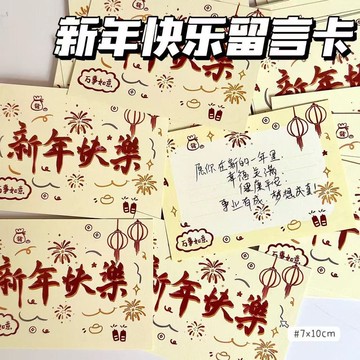 新年快乐留言卡
万事如意
新年快樂
新年快樂
愿你在新的一年里
幸福美满
健康平安
事业有成 梦想成真!
万事如意
新年快樂
万事如意
新年快樂
#7×10cm